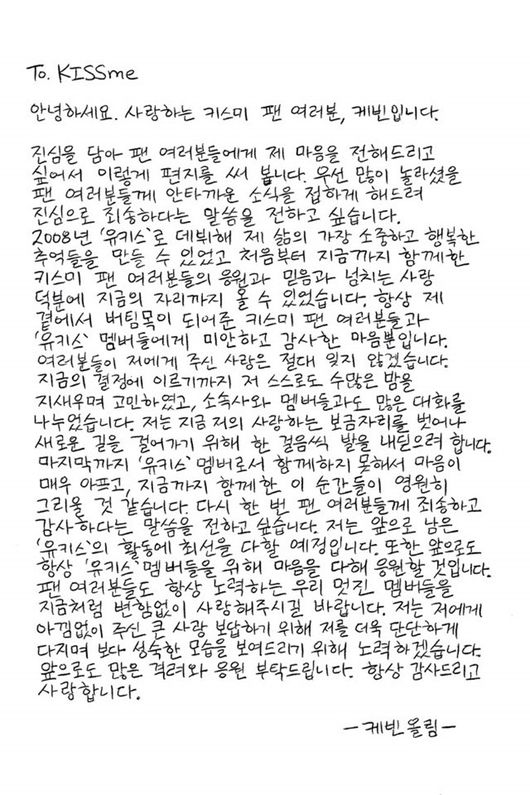 To. KISSme
안녕하세요. 사랑하는 키스미 팬 여러분, 케빈입니다.
진심을 담아 팬 여러분들에게 제 마음을 전해드리고
싶어서 이렇게 편지를 써 봅니다. 우선 많이 놀라셨을
팬 여러분들께 안타까운 소식을 접하게 해드려
진심으로 죄송하다는 말씀을 전하고 싶습니다.
2008년 '유키스'로 데뷔해 제 삶의 가장 소중하고 행복한
추억들을 만들 수 있었고 처음부터 지금까지 함께한
키스미 팬 여러분들의 응원과 믿음과 넘치는 사랑
덕분에 지금의 자리까지 올 수 있었습니다. 항상 제
곁에서 버팀목이 되어준 키스미 팬 여러분들과
'유키스' 멤버들에게 미안하고 감사한 마음뿐입니다.
여러분들이 저에게 주신 사랑은 절대 잊지 않겠습니다.
지금의 결정에 이르기까지 저 스스로도 수많은 밤을
지새우며 고민하였고, 소속사와 멤버들과도 많은 대화를
나누었습니다. 저는 지금 저의 사랑하는 보금자리를 벗어나
새로운 길을 걸어가기 위해 한 걸음씩 발을 내딛으려 합니다.
마지막까지 '유키스' 멤버로서 함께하지 못해서 마음이
매우 아프고, 지금까지 함께한 이 순간들이 영원히
그리울 것 같습니다. 다시 한 번 팬 여러분들께 죄송하고
감사하다는 말씀을 전하고 싶습니다. 저는 앞으로 남은
'유키스'의 활동에 최선을 다할 예정입니다. 또한 앞으로도
항상 '유키스' 멤버들을 위해 마음을 다해 응원할 것입니다.
팬 여러분들도 항상 노력하는 우리 멋진 멤버들을
지금처럼 변함없이 사랑해주시길 바랍니다. 저는 저에게
아낌없이 주신 큰 사랑 보답하기 위해 저를 더욱 단단하게
다지며 보다 성숙한 모습을 보여드리기 위해 노력하겠습니다.
앞으로도 많은 격려와 응원 부탁드립니다. 항상 감사드리고
사랑합니다.
-케빈올림-